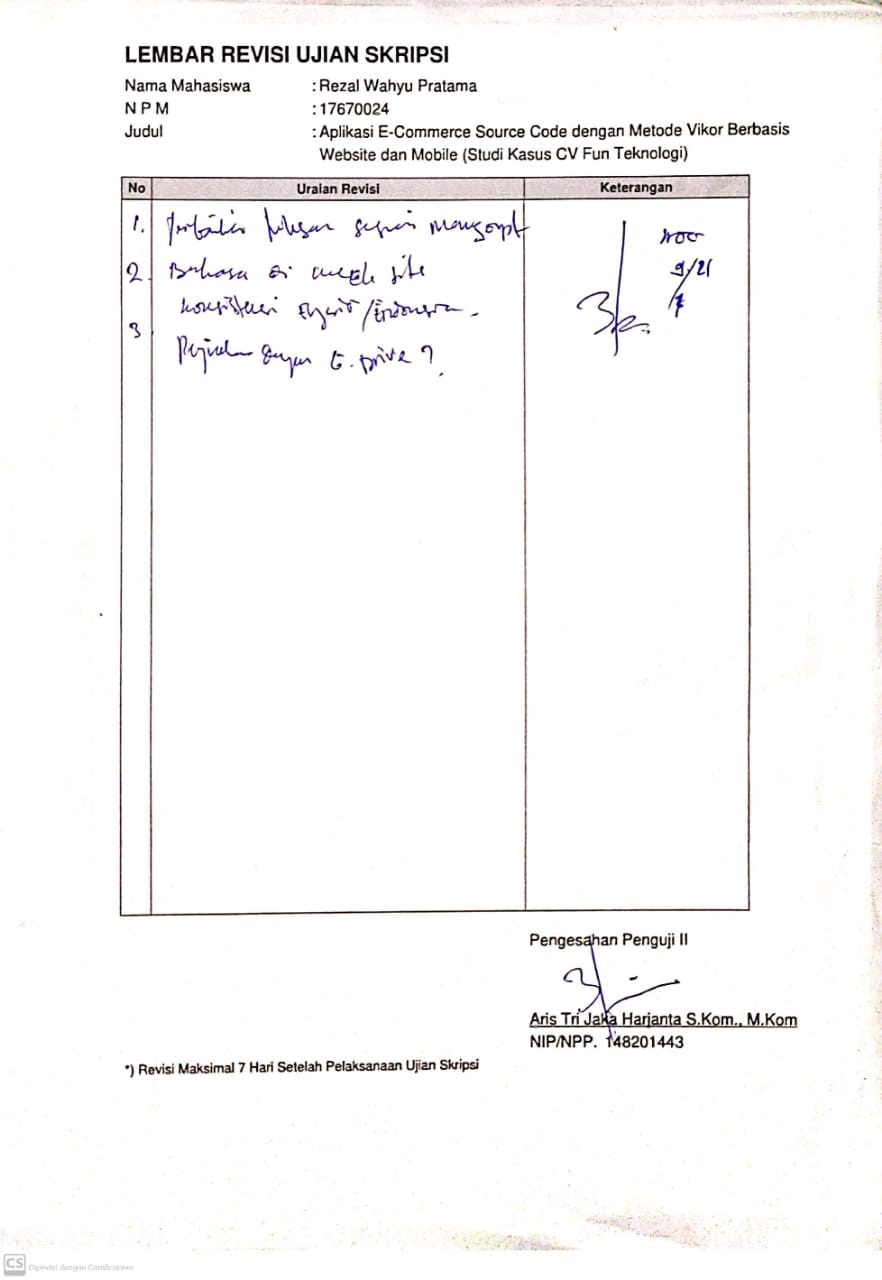 LEMBAR REVISI UJIAN SKRIPSI
Nama Mahasiswa : Rezal Wahyu Pratama
N P M : 17670024
Judul : Aplikasi E-Commerce Source Code dengan Metode Vikor Berbasis
Website dan Mobile (Studi Kasus CV Fun Teknologi)
No Uraian Revisi Keterangan
1.
2. Bahasa di site
konsistensi /Indonesia
3 dengan G. Drive ?
ACC
9/21
7
Pengesahan Penguji II
Aris Tri Jaka Harjanta S.Kom., M.Kom
NIP/NPP. 148201443
*) Revisi Maksimal 7 Hari Setelah Pelaksanaan Ujian Skripsi
CS Dipindai dengan CamScanner